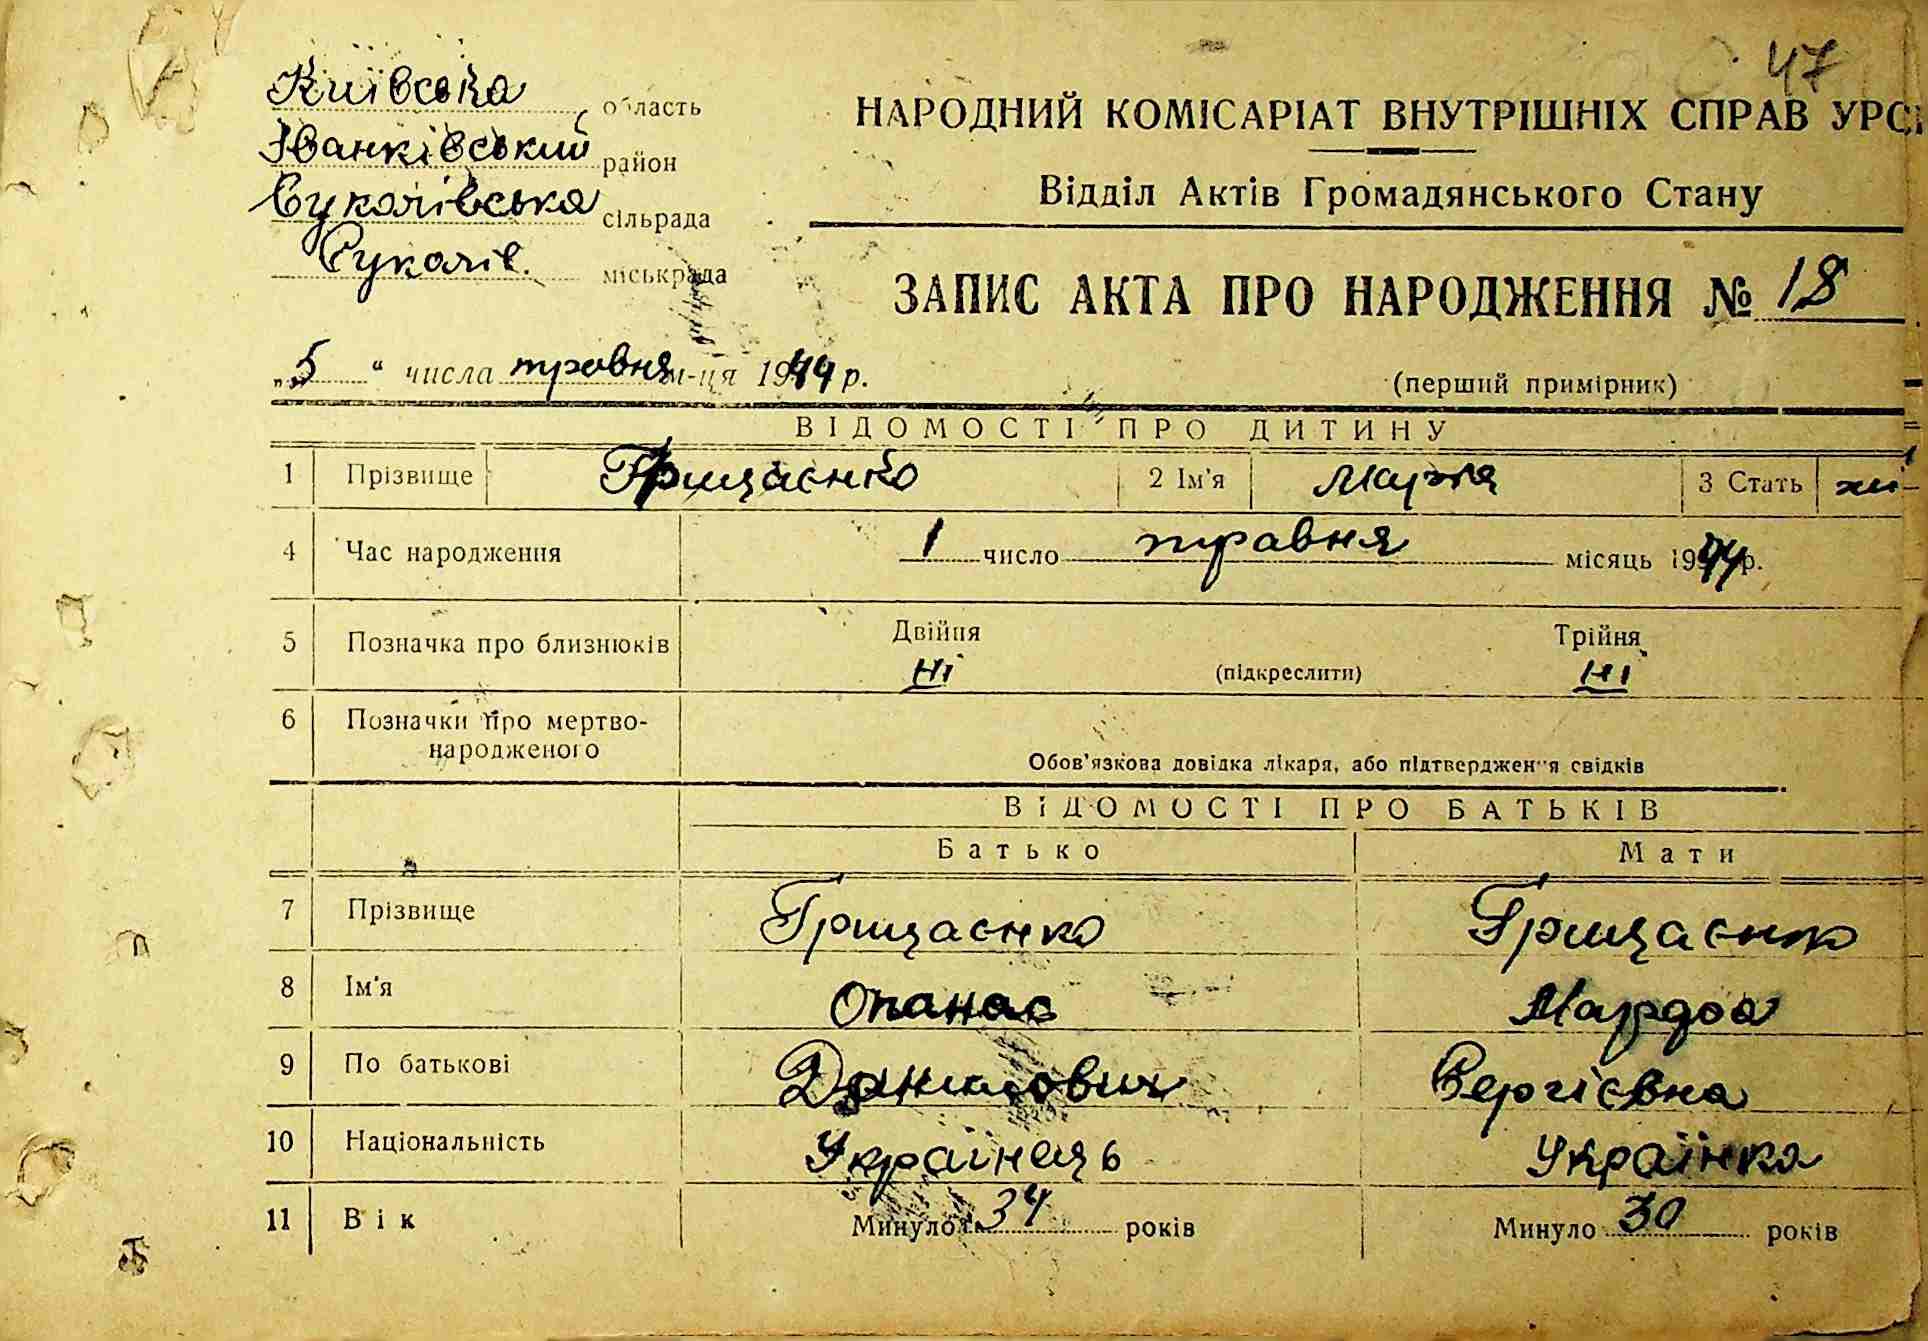 47
Київська область
Іванківський район
Сукачівська сільрада
Сукачів. міськрада
НАРОДНИЙ КОМІСАРІАТ ВНУТРІШНІХ СПРАВ УРСР
Відділ Актів Громадянського Стану
ЗАПИС АКТА ПРО НАРОДЖЕННЯ № 18
„5“ числа травня м-ця 1944 р.
(перший примірник)
ВІДОМОСТІ ПРО ДИТИНУ
1 Прізвище Грищаєнко 2 Ім'я Марія 3 Стать жі-
4 Час народження 1 число травня місяць 1944 р.
5 Позначка про близнюків Двійня Трійня
ні (підкреслити) ні
6 Позначки про мертво-
народженого
Обов'язкова довідка лікаря, або підтвердження свідків
ВІДОМОСТІ ПРО БАТЬКІВ
Батько Мати
7 Прізвище Грищаєнко Грищаєнко
8 Ім'я Опанас
9 По батькові Данилович Сергієвна
10 Національність Українець Українка
11 Вік Минуло 34 років Минуло 30 років